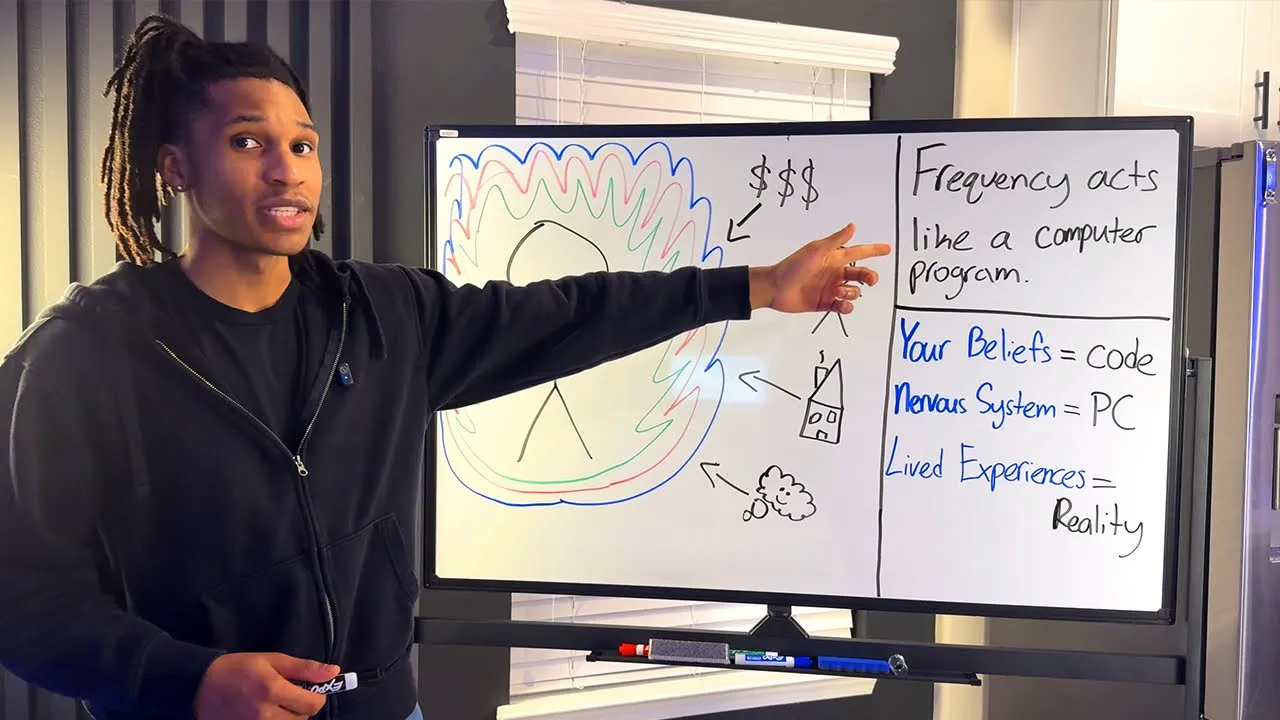 $$$
Frequency acts
like a computer
program.
Your Beliefs = code
Nervous System = PC
Lived Experiences =
Reality
EXPO